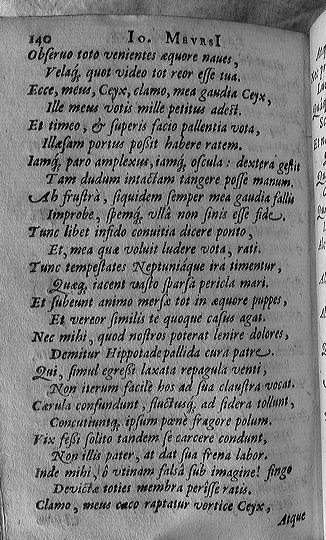 140 IO. MEVRSI
Obseruo toto venientes æquore naues,
Velaq́; quot video tot reor esse tua.
Ecce, meus, Ceyx, clamo, mea gaudia Ceyx,
Ille meus votis mille petitus adest.
Et timeo, & superis facio pallentia vota,
Illæsam portus possit habere ratem.
Iamq́; paro amplexus, iamq́; oscula: dextera gestit
Tam dudum intactam tangere posse manum.
Ah frustrà, siquidem semper mea gaudia fallis
Improbe, spemq́; vllâ non sinis esse fide.
Tunc libet infido conuitia dicere ponto,
Et, mea quæ voluit ludere vota, rati.
Tunc tempestates Neptuniáque ira timentur,
Quæq́; iacent vasto sparsa pericla mari.
Et subeunt animo mersæ tot in æquore puppes,
Et vereor similis te quoque casus agat.
Nec mihi, quod nostros poterat lenire dolores,
Demitur Hippotade pallida cura patre.
Qui, simul egressi laxata repagula venti,
Non iterum facilè hos ad sua claustra vocat.
Cærula confundunt, fluctusq́; ad sidera tollunt,
Concutiuntq́; ipsum pæne fragore polum.
Vix fessi solito tandem se carcere condunt,
Non illis pater, at dat sua frena labor.
Inde mihi, ô vtinam falsâ sub imagine! fingo
Deuictæ toties membra perisse ratis.
Clamo, meus cæco raptatur vortice Ceyx,
Atque